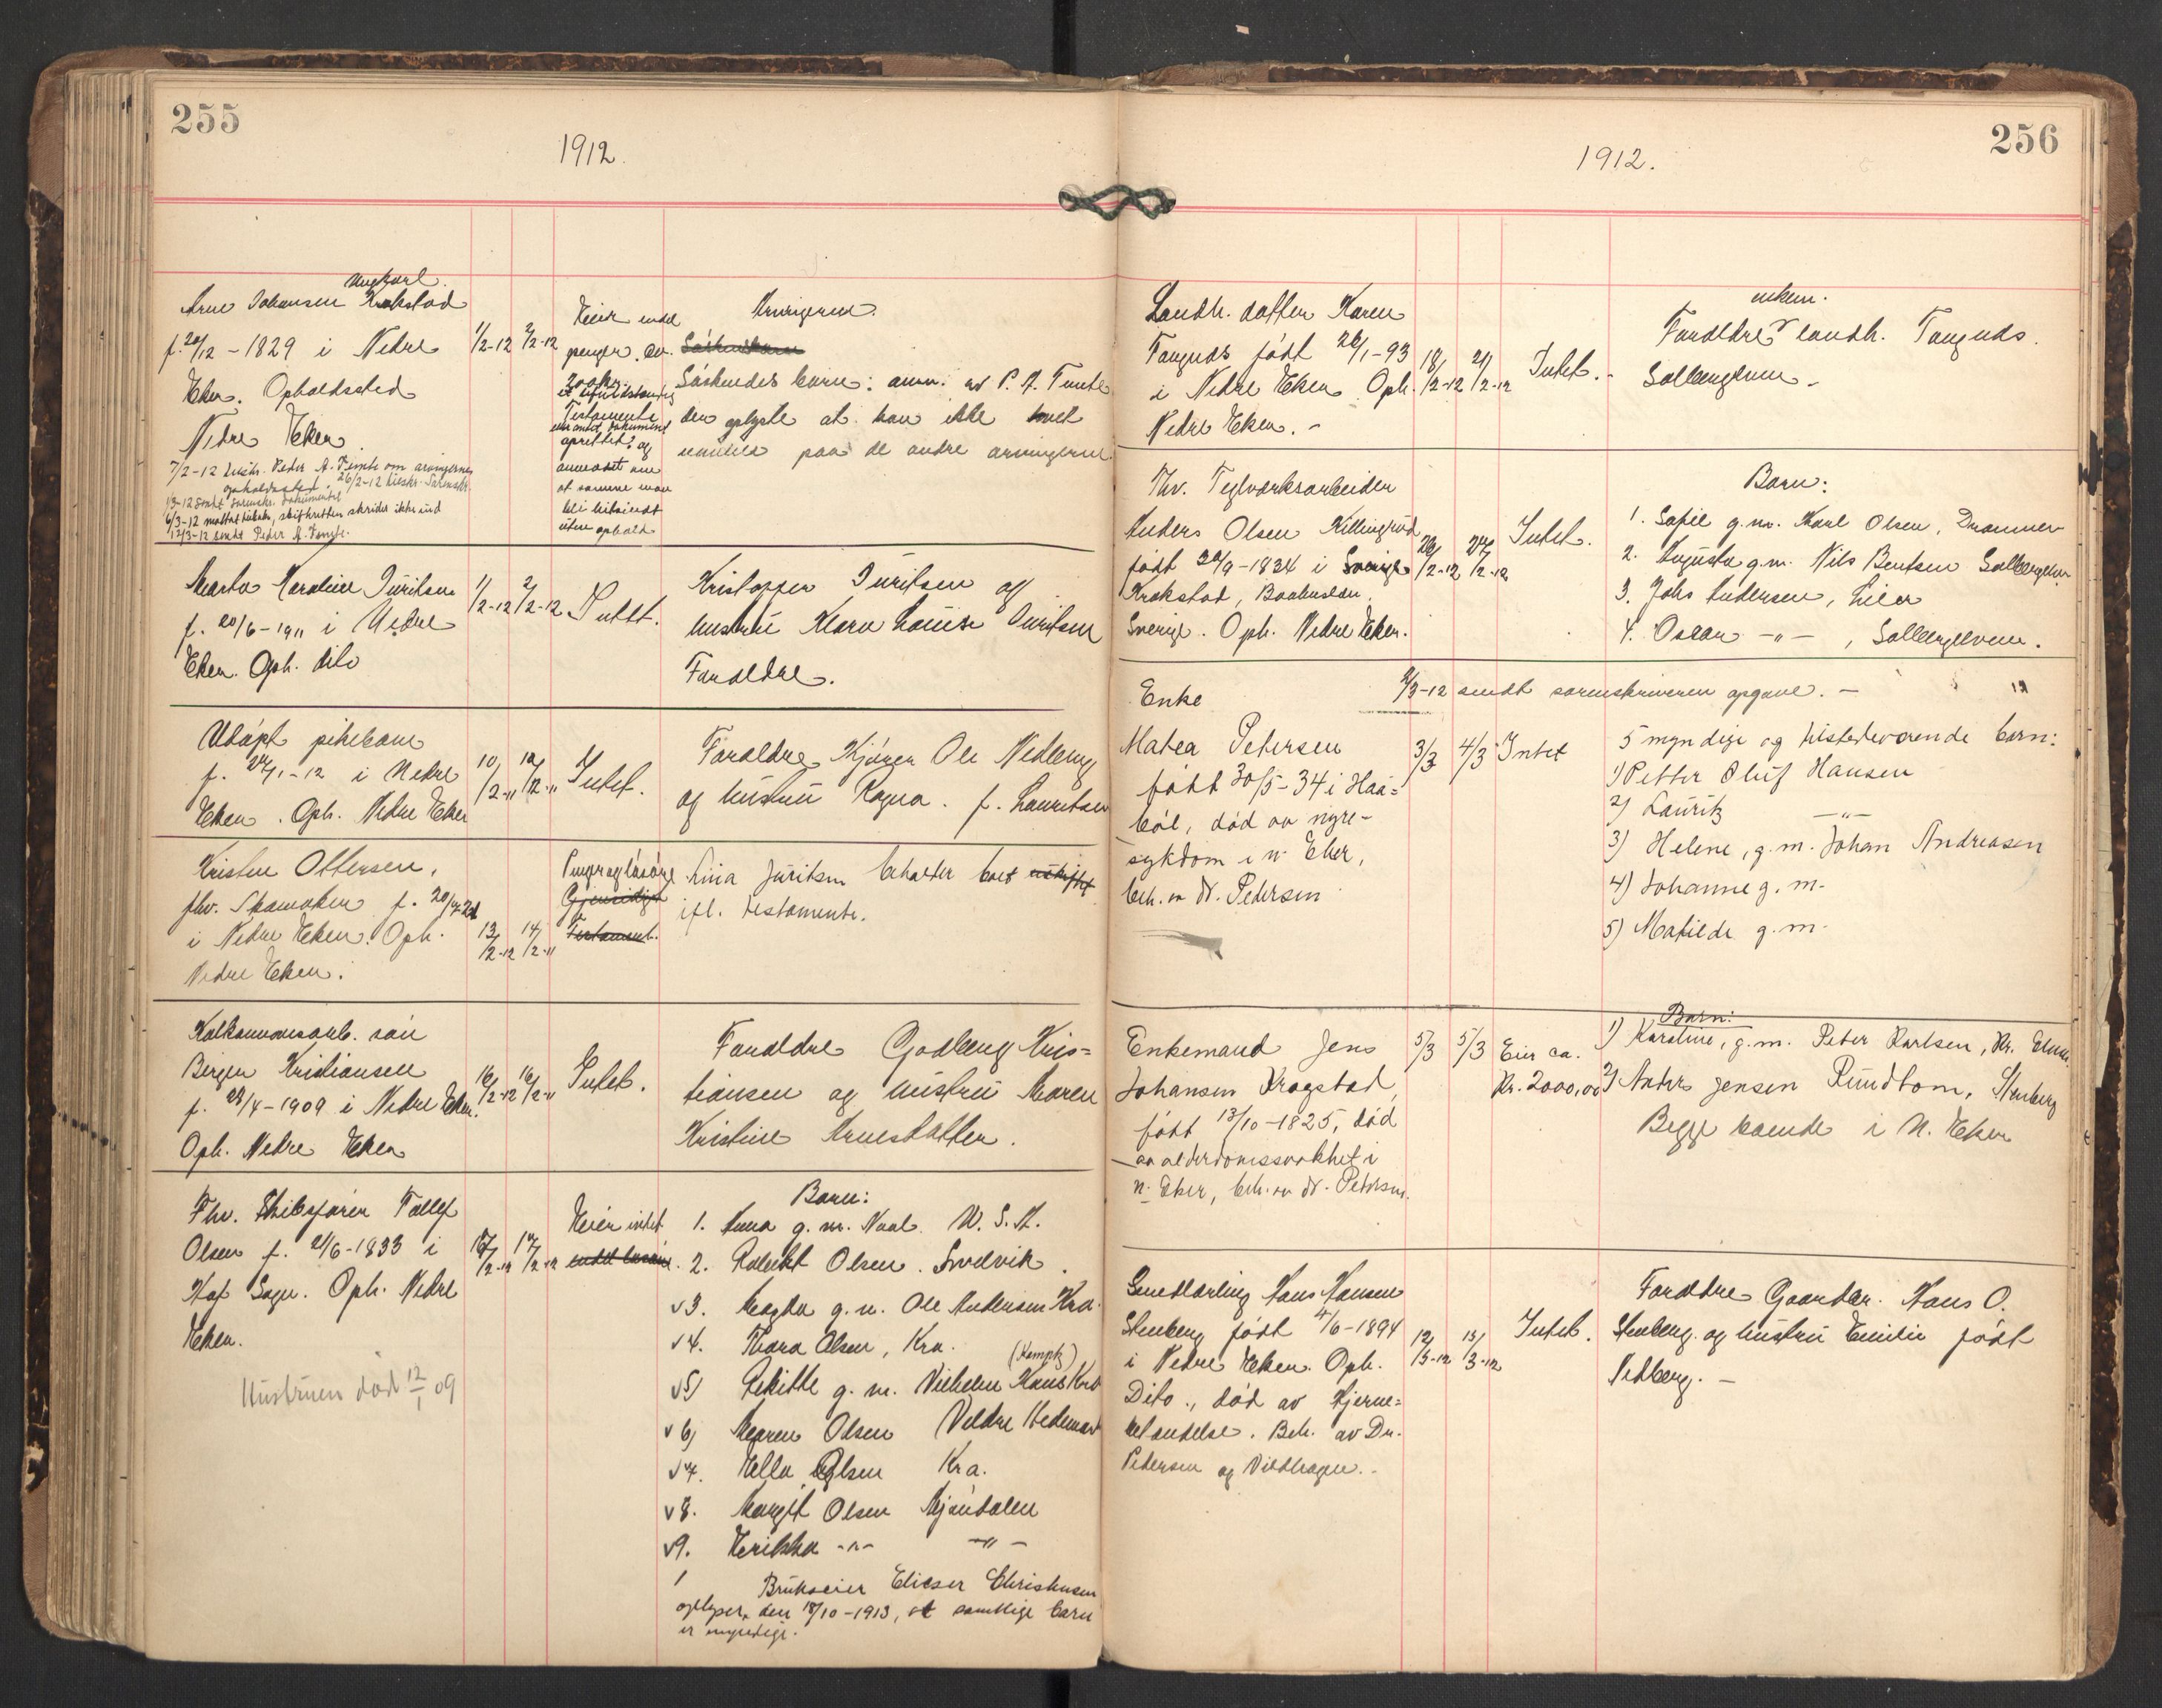 255
1912.
Ungkarl.
Arne Johansen Krokstad
f. 20/12 - 1829 i Nedre
Eker. Opholdssted
Nedre Eker
7/2-12 tilskr. Peder A. Temte om arvingernes
opholdssted. 26/2-12 tilskr. Sorenskr.
1/3-12 sendt sorenskr. dokumentet
6/3-12 mottat tilbake, skifteretten skrider ikke ind
12/3-12 sendt Peder A. Temte.
1/2-12 2/2-12
Eeier endel
penger. ca.
200 kr.
Testamente
oprettet? og
anmodet om
at samme maa
bli indsendt
uten ophold
Arvingerne.
Söskendebarn
Söskendes barn: anm. av P. A. Temte
den oplyste at han ikke hvet
paa de andre arvingerne.
Marta Karoline Juritsen
f. 20/6 - 1911 i Nedre
Eker. Oph. dito
1/2-12 2/2-12 Intet.
Kristoffer Juritsen og
hustru Maren Louise Juritsen
Foreldre.
Udöpt pikebarn
f. 24/1 - 12 i Nedre
Eker. Oph. Nedre Eker
10/2-" 12/2-" Intet.
Foreldre Kjörer Ole Nedberg
og hustru Ragna. f. Lauritsen
Kristen Ottersen,
fhv. Skomaker f. 20/4 21
i Nedre Eker. Oph.
Nedre Eker.
13/2-12 14/2-"
Penger og lösöre
Gjensidigt
Testament.
Lina Juritsen beholder boet uskiftet
ifl. testamente.
Birger Kristiansen
f. 28/4 - 1909 i Nedre Eker.
Oph. Nedre Eker
16/2-12 16/2-" Intet.
Foreldre Godberg Kris=
tiansen og hustru Maren
Kristine Arnesdatter.
Fhv. Skibsförer Tollef
Olsen f. 21/6 - 1833 i
Hof Sogn. Oph. Nedre
Eker.
Hustruen död 12/1 09
17/2-12
Eeier intet
endel lösöre.
Barn:
1. Anna g. m. Naal. U. S. A.
2. Robert Olsen. Svelvik.
v3. Magda g. m. Ole Andersen Kra.
v4. Thora Olsen, Kra.
(Kamph)
v5) Rikitte g. m. Vilhelm Hans Kra
v6) Maren Olsen Veldre Hedemark
v7. Ella Olsen Kra.
v8. Margit Olsen Mjöndalen
v9. Henrikka -"- -"-
Brukseier Elieser Christensen
oplyser, den 18/10 - 1913, at samtlige barn
er myndige.
256
1912.
Landh. datter Karen
Tangnds född 26/1 - 93
i Nedre Eker Oph.
Nedre Eker. -
18/2-12 21/2-12 Intet. -
enkem.
Foreldre landh. Tangnds.
Solbergelven -
Fhv. Teglverksarbeider
Anders Olsen Killingrud
född 30/9 - 1824 i Sverige
Krokstad, Baahuslen,
Sverige. Oph. Nedre Eker.
26/2-12 27/2-12 Intet.
Barn:
1. Sofie g. m. Karl Olsen, Drammen
2. Augusta g. m. Nils Bentsen Solbergelven
3. Johs Andersen, Lier
4. Oscar -"- , Solbergelven.
2/3-12 sendt sorenskriveren opgave. -
Enke
Matea Petersen
född 30/5 - 34 i Haa=
böl, död av nyre-
sykdom i n. Eker,
beh. av dr. Pedersen
3/3 4/3 Intet
5 myndige og tilstedeværende barn:
1) Petter Oluf Hansen
2) Lauritz -"-
3) Helene, g. m. Johan Andreasen
4) Johanne g. m.
5) Matilde g. m.
Enkemand Jens
Johansen Krogstad,
född 13/10 - 1825, död
av alderdomssvakhet i
n. Eker, beh. av dr. Petersen.
5/3 5/3 Eier ca.
Kr. 2000,00
Barn:
1) Karoline, g. m. Peter Karlsen, Kr. Elven
2) Anders Jensen Rundtom, Stenberg
Begge boende i N. Eker
Smedlærling Hans Hansen
Stenberg född 4/6 - 1894
i Nedre Eker. Oph.
Dito., död av Hjerne=
betændelse. Beh. av Dr.
Pedersen og Vildhagen. -
12/3-12 13/3-12 Intet.
Foreldre Gaardbr. Hans O.
Stenberg og hustru Emilie född
Nedberg. -